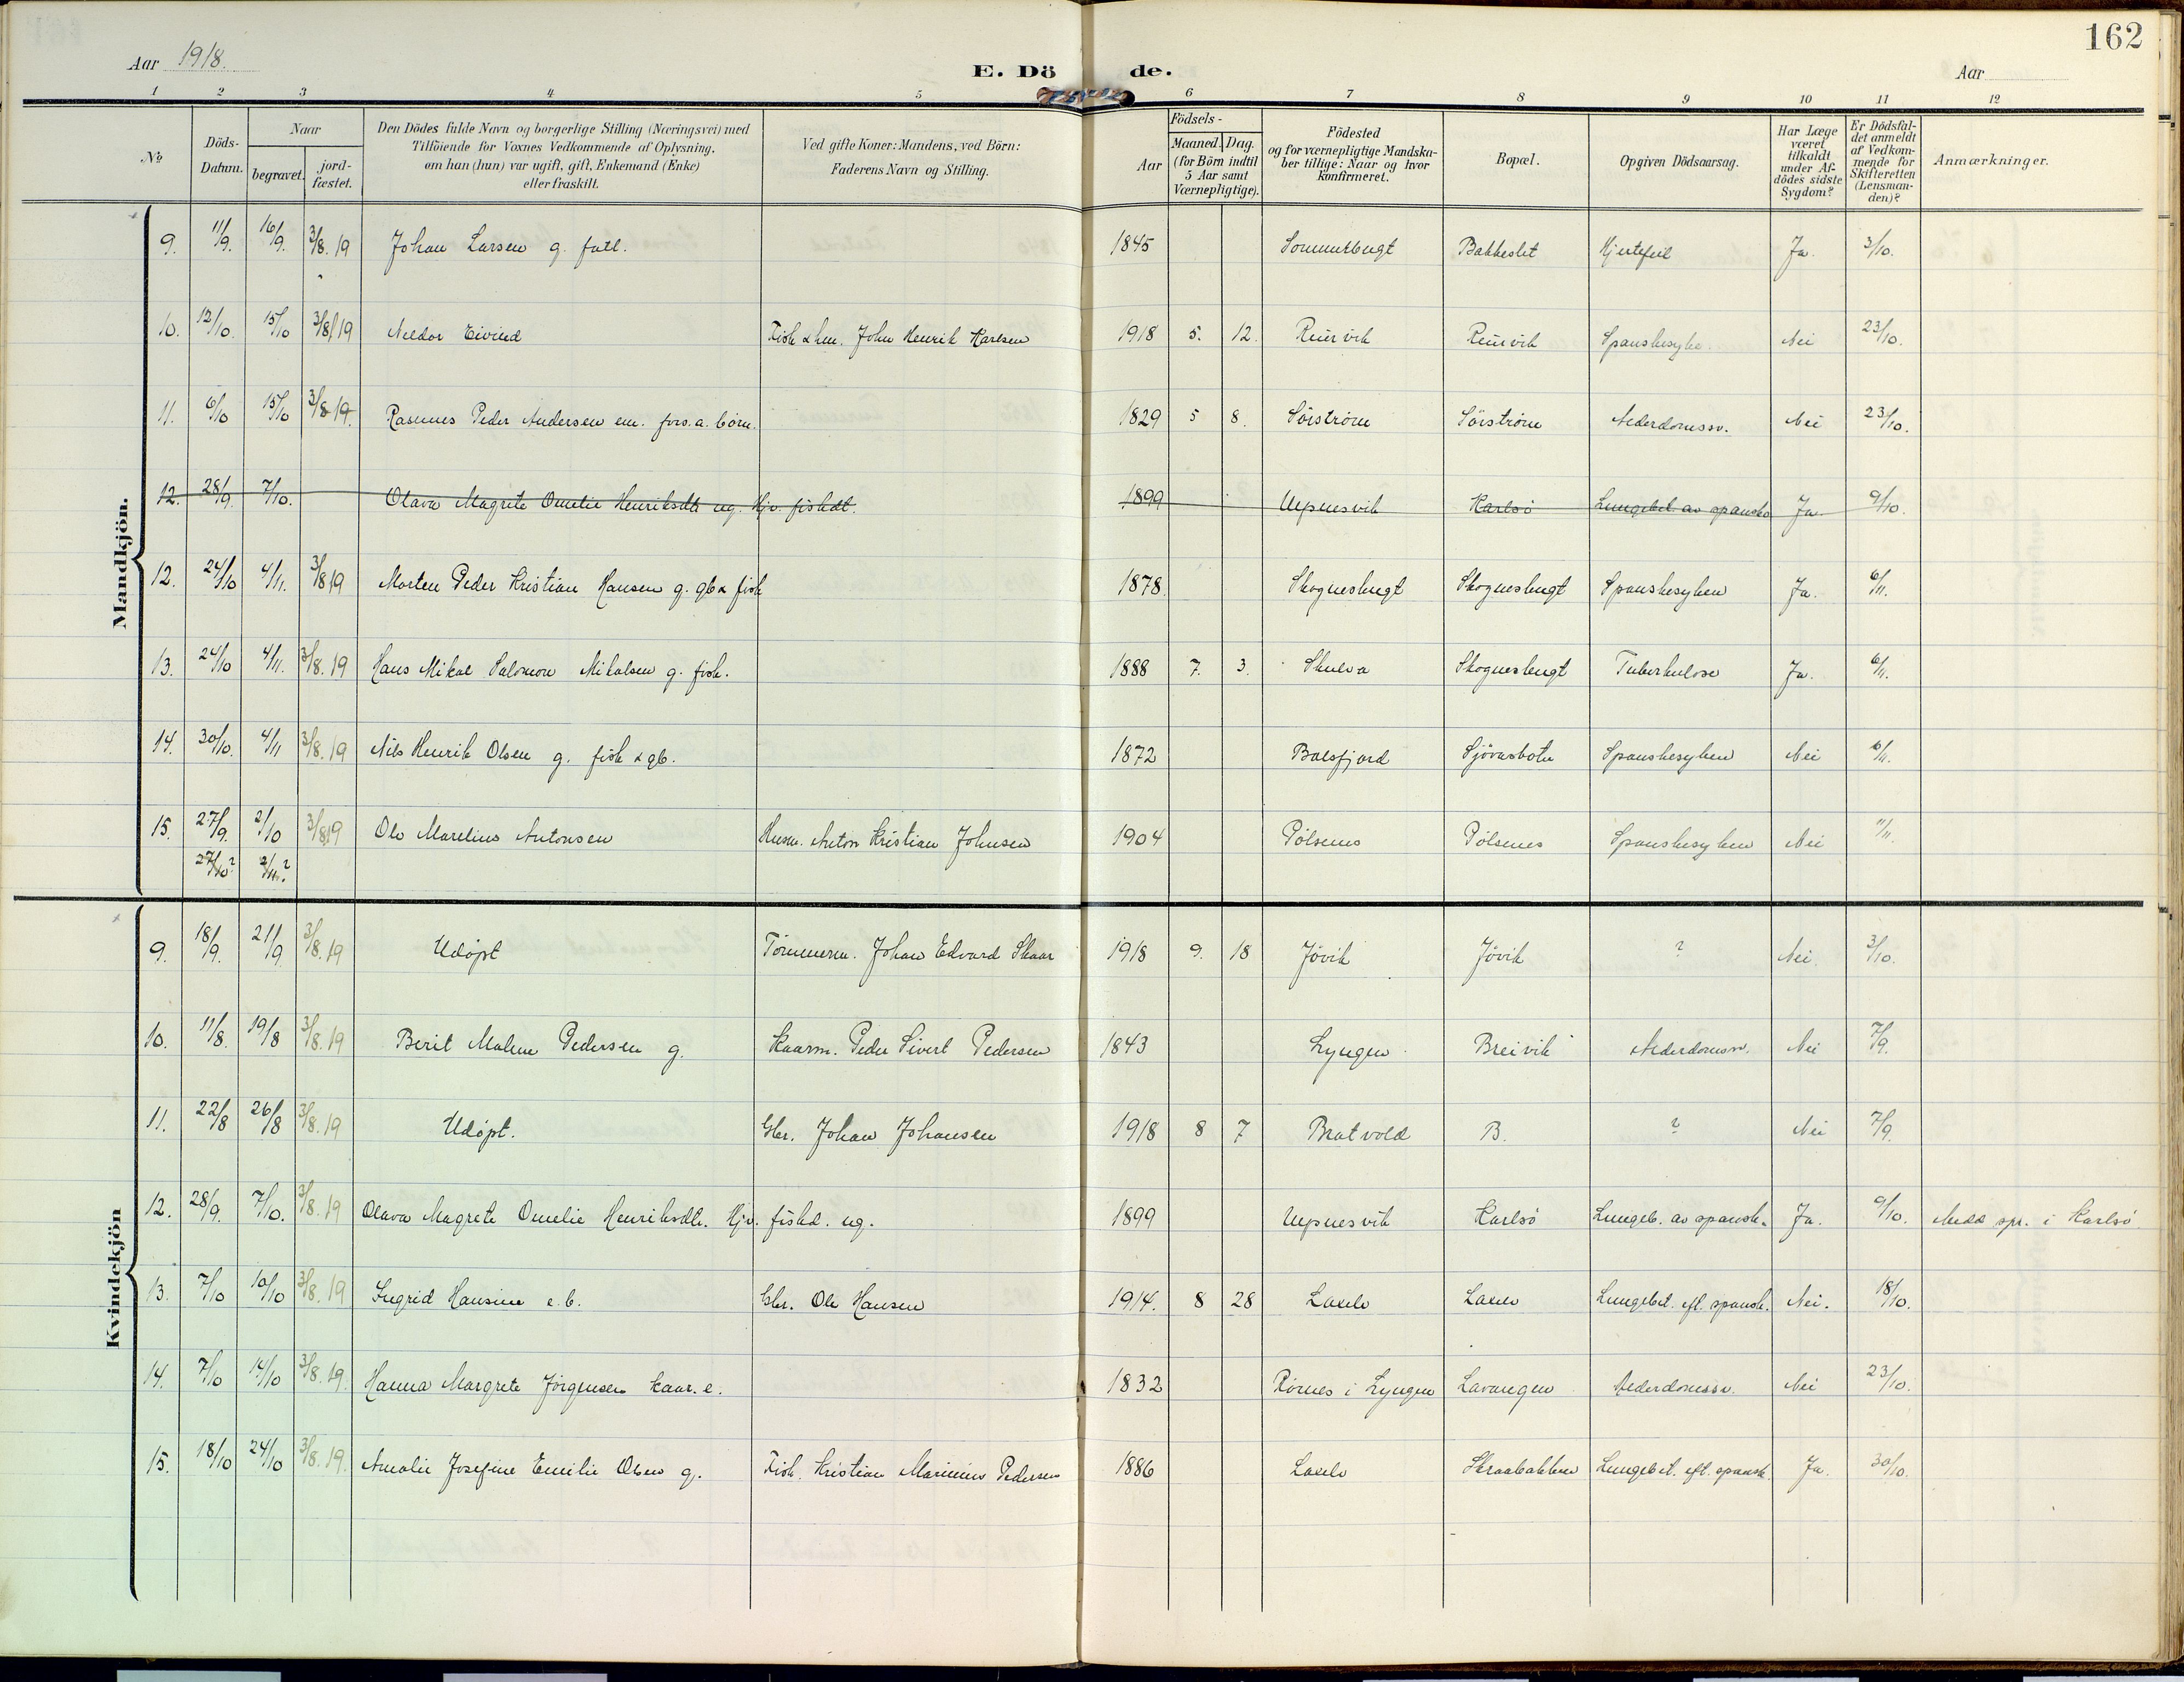 162
Aar 1918.
E. Dö de.
Aar
1 2 3 4 5 6 7 8 9 10 11 12
No
Döds-Datum.
Naar
begravet.
jord-fæstet.
Den Dödes fulde Navn og borgerlige Stilling (Næringsvei) med
Tilföiende for Voxnes Vedkommende af Oplysning,
om han (hun) var ugift, gift, Enkemand (Enke)
eller fraskilt.
Ved gifte Koner: Mandens, ved Börn:
Faderens Navn og Stilling.
Födsels-
Aar
Maaned. Dag.
(for Börn indtil
5 Aar samt
Værnepligtige).
Födested
og for værnepligtige Mandska-
ber tillige: Naar og hvor
Konfirmeret.
Bopæl.
Opgiven Dödsaarsag.
Har Læge
været
tilkaldt
under Af-
dödes sidste
Sygdom?
Er Dödsfal-
det anmeldt
af Vedkom-
mende for
Skifteretten
(Lensman-
den)?
Anmærkninger.
Mandkjön.
9. 11/9. 16/9. 3/8. 19 Johan Larsen g. fatl. 1845 Sommerbugt Bakkeslet Hjertefeil Ja. 3/10.
10. 12/10. 15/10 3/8 19 Meldor Eivind Fisk & hm. John Henrik Karlsen 1918 5. 12. Reinvik Reinvik Spanskesyke. Nei 23/10.
11. 6/10 15/10 3/8 19. Rasmus Peder Andersen em. fors. a. börn. 1829 5 8. Sörström Sörström Alderdomssv. Nei 23/10.
12. 28/9. 7/10. Olava Magrete Omelie Henriksdtr. ug. Hjv. fiskdt. 1899 Uepnesvik Karlsö Lungebet. av spanske Ja. 9/10.
12. 24/10 4/11. 3/8 19 Morten Peder Kristian Hansen g. gb & fisk 1878. Skognesbugt Skognesbugt Spanskesyken Ja. 6/11.
13. 24/10 4/11. 3/8. 19 Hans Mikal Salomon Mikalsen g. fisk. 1888 7. 3. Skulva Skognesbugt Tuberkulose Ja. 6/11.
14. 30/10. 4/11 3/8. 19 Nils Henrik Olsen g. fisk & gb. 1872 Balsfjord Sjövasbotn Spanskesyken Nei 6/11.
15. 27/9. 2/10 3/8 19 Ole Marelius Antonsen Husm. Anton Kristian Johnsen 1904 Pölsenes Pölsenes Spanskesyken Nei 11/11.
27/10? 2/11.?
Kvindekjön
9. 18/9. 21/9 3/8. 19 Udöpt Tömmerm. Johan Edvard Skaar 1918 9. 18 Jövik Jövik ? Nei. 3/10.
10. 11/8. 19/8 3/8. 19 Berit Malene Pedersen g. Kaarm. Peder Sivert Pedersen 1843 Lyngen Breivik Alderdomssv. Nei 7/9.
11. 22/8 26/8 3/8. 19 Udöpt. Gbr. Johan Johansen 1918 8 7 Bratvold B. ? Nei 7/9.
12. 28/9. 7/10. 3/8. 19 Olava Magrete Omelie Henriksdtr. Hjv. fiskd. ug. 1899 Uepnesvik Karlsö Lungeb. av spansk. Ja. 9/10. Medd spr. i Karlsö
13. 7/10 10/10 3/8. 19 Ingrid Hansine e. b. Gbr. Ole Hansen 1914. 8 28 Lakselv Lakselv Lungebet. eft. spansk. Nei. 18/10.
14. 7/10 14/10 3/8. 19. Hanna Margrete Jörgensen kaar. e. 1832 Rörnes i Lyngen Lavangen Alderdomssv. Nei 23/10.
15. 18/10 24/10 3/8. 19. Amalie Josefine Emilie Olsen g. Fisk. Kristian Marinius Pedersen 1886 Lakselv Skraabakken Lungebet. eft. spansk. Ja. 30/10.